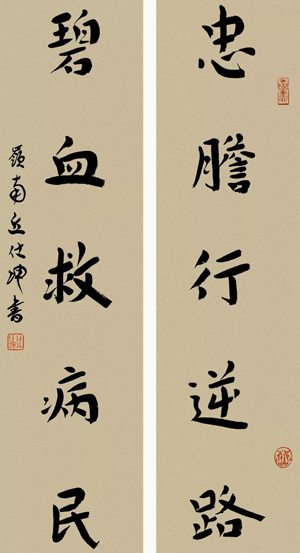 忠膽行逆路
碧血救病民
嶺南丘仕坤書